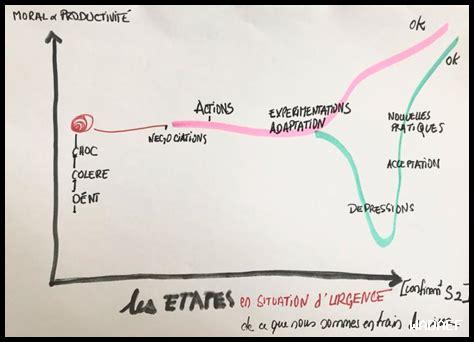 MORAL & PRODUCTIVITÉ
OK
OK
ACTIONS
EXPÉRIMENTATIONS
ADAPTATION
NOUVELLES
PRATIQUES
NEGOCIATIONS
CHOC
COLERE
DÉNI
ACCEPTATION
DEPRESSIONS
[confinemt S2]
les ETAPES en SITUATION d'URGENCE
de ce que nous sommes en train